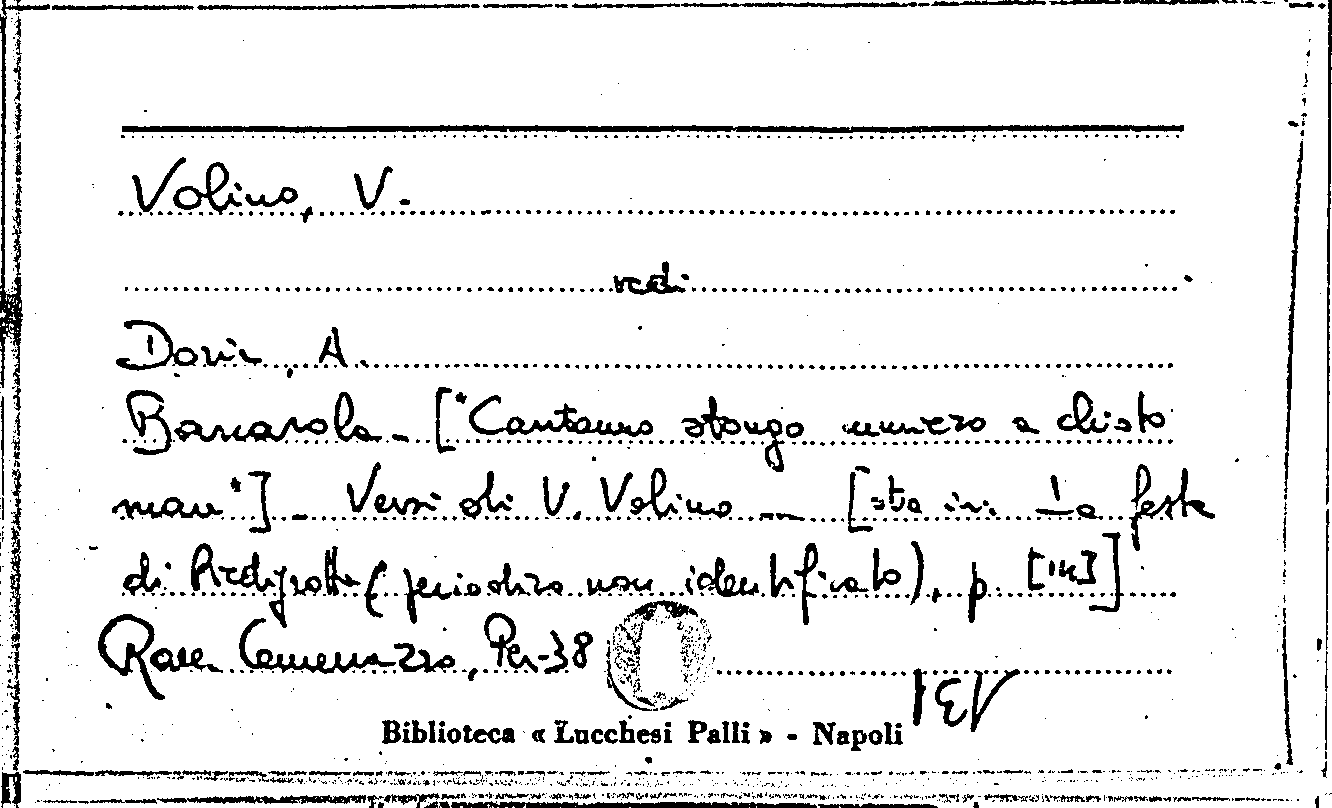 Volino, V.
vedi
Doria, A.
Barcarola - ["Cantanno stongo mmiezo a chisto
mare"] - Versi di V. Volino - [sta in: La festa
di Piedigrotta (periodico non identificato), p.
Racc. Cammarano, Per-38
Biblioteca « Lucchesi Palli » - Napoli